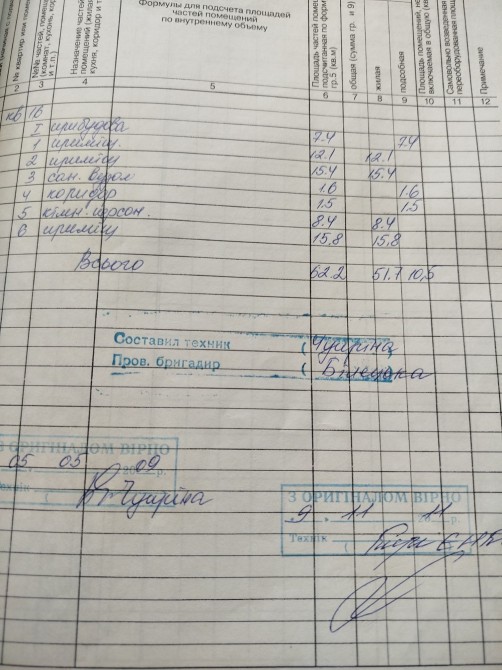 № квартир
№№ частей, помещений (комнат, кухонь, кор. и т.п.)
Назначение частей помещений (жилая, кухня, коридор и т.
Формулы для подсчета площадей частей помещений по внутреннему обьему
Площадь частей помещ подсчитанная по форм гр.5 (кв.м)
общая (сумма гр. и 9)
жилая
подсобная
Площадь помещений, не включаемая в общую (кв.
Самовольно возведенная переоборудованная площ
Примечание
2 3 4 5 6 7 8 9 10 11 12
кв 1в
I прибудова 7.4 7.4
1 приміщ. 12.1 12.1
2 приміщ 15.4 15.4
3 сан. вузол 1.6 1.6
4 коридор 1.5 1.5
5 кімн. персон. 8.4 8.4
6 приміщ 15,8 15,8
Всього 62.2 51.7 10,5
Составил техник ( Чуприна
Пров. бригадир (
З ОРИГІНАЛОМ ВІРНО
05 05 09 р.
Технік (
Чуприна
З ОРИГІНАЛОМ ВІРНО
9 . 11 11 р.
Технік (